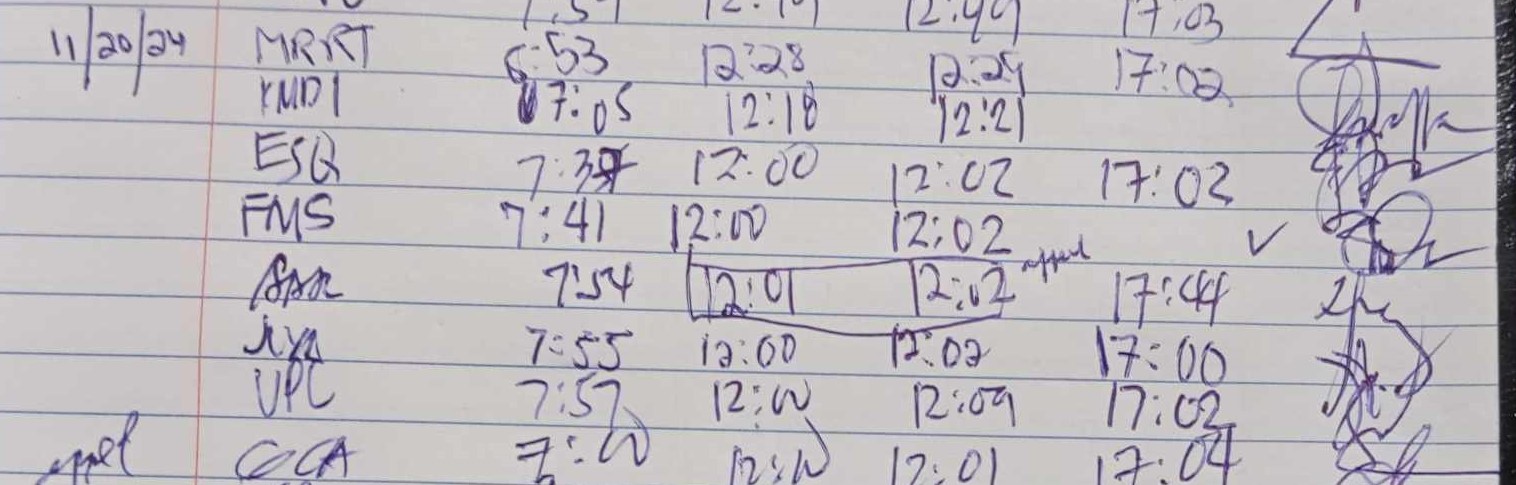 12:49 17:03
11/20/24 MRRT 6:53 12:28 12:29 17:02
KMDI 7:05 12:18 12:21
ESQ 7:37 12:00 12:02 17:02
FMS 7:41 12:00 12:02 ✓
7:54 12:01 12:02 17:44
7:55 12:00 12:02 17:00
VPC 7:57 12:00 12:09 17:02
CCA 7:00 12:10 12:01 17:04